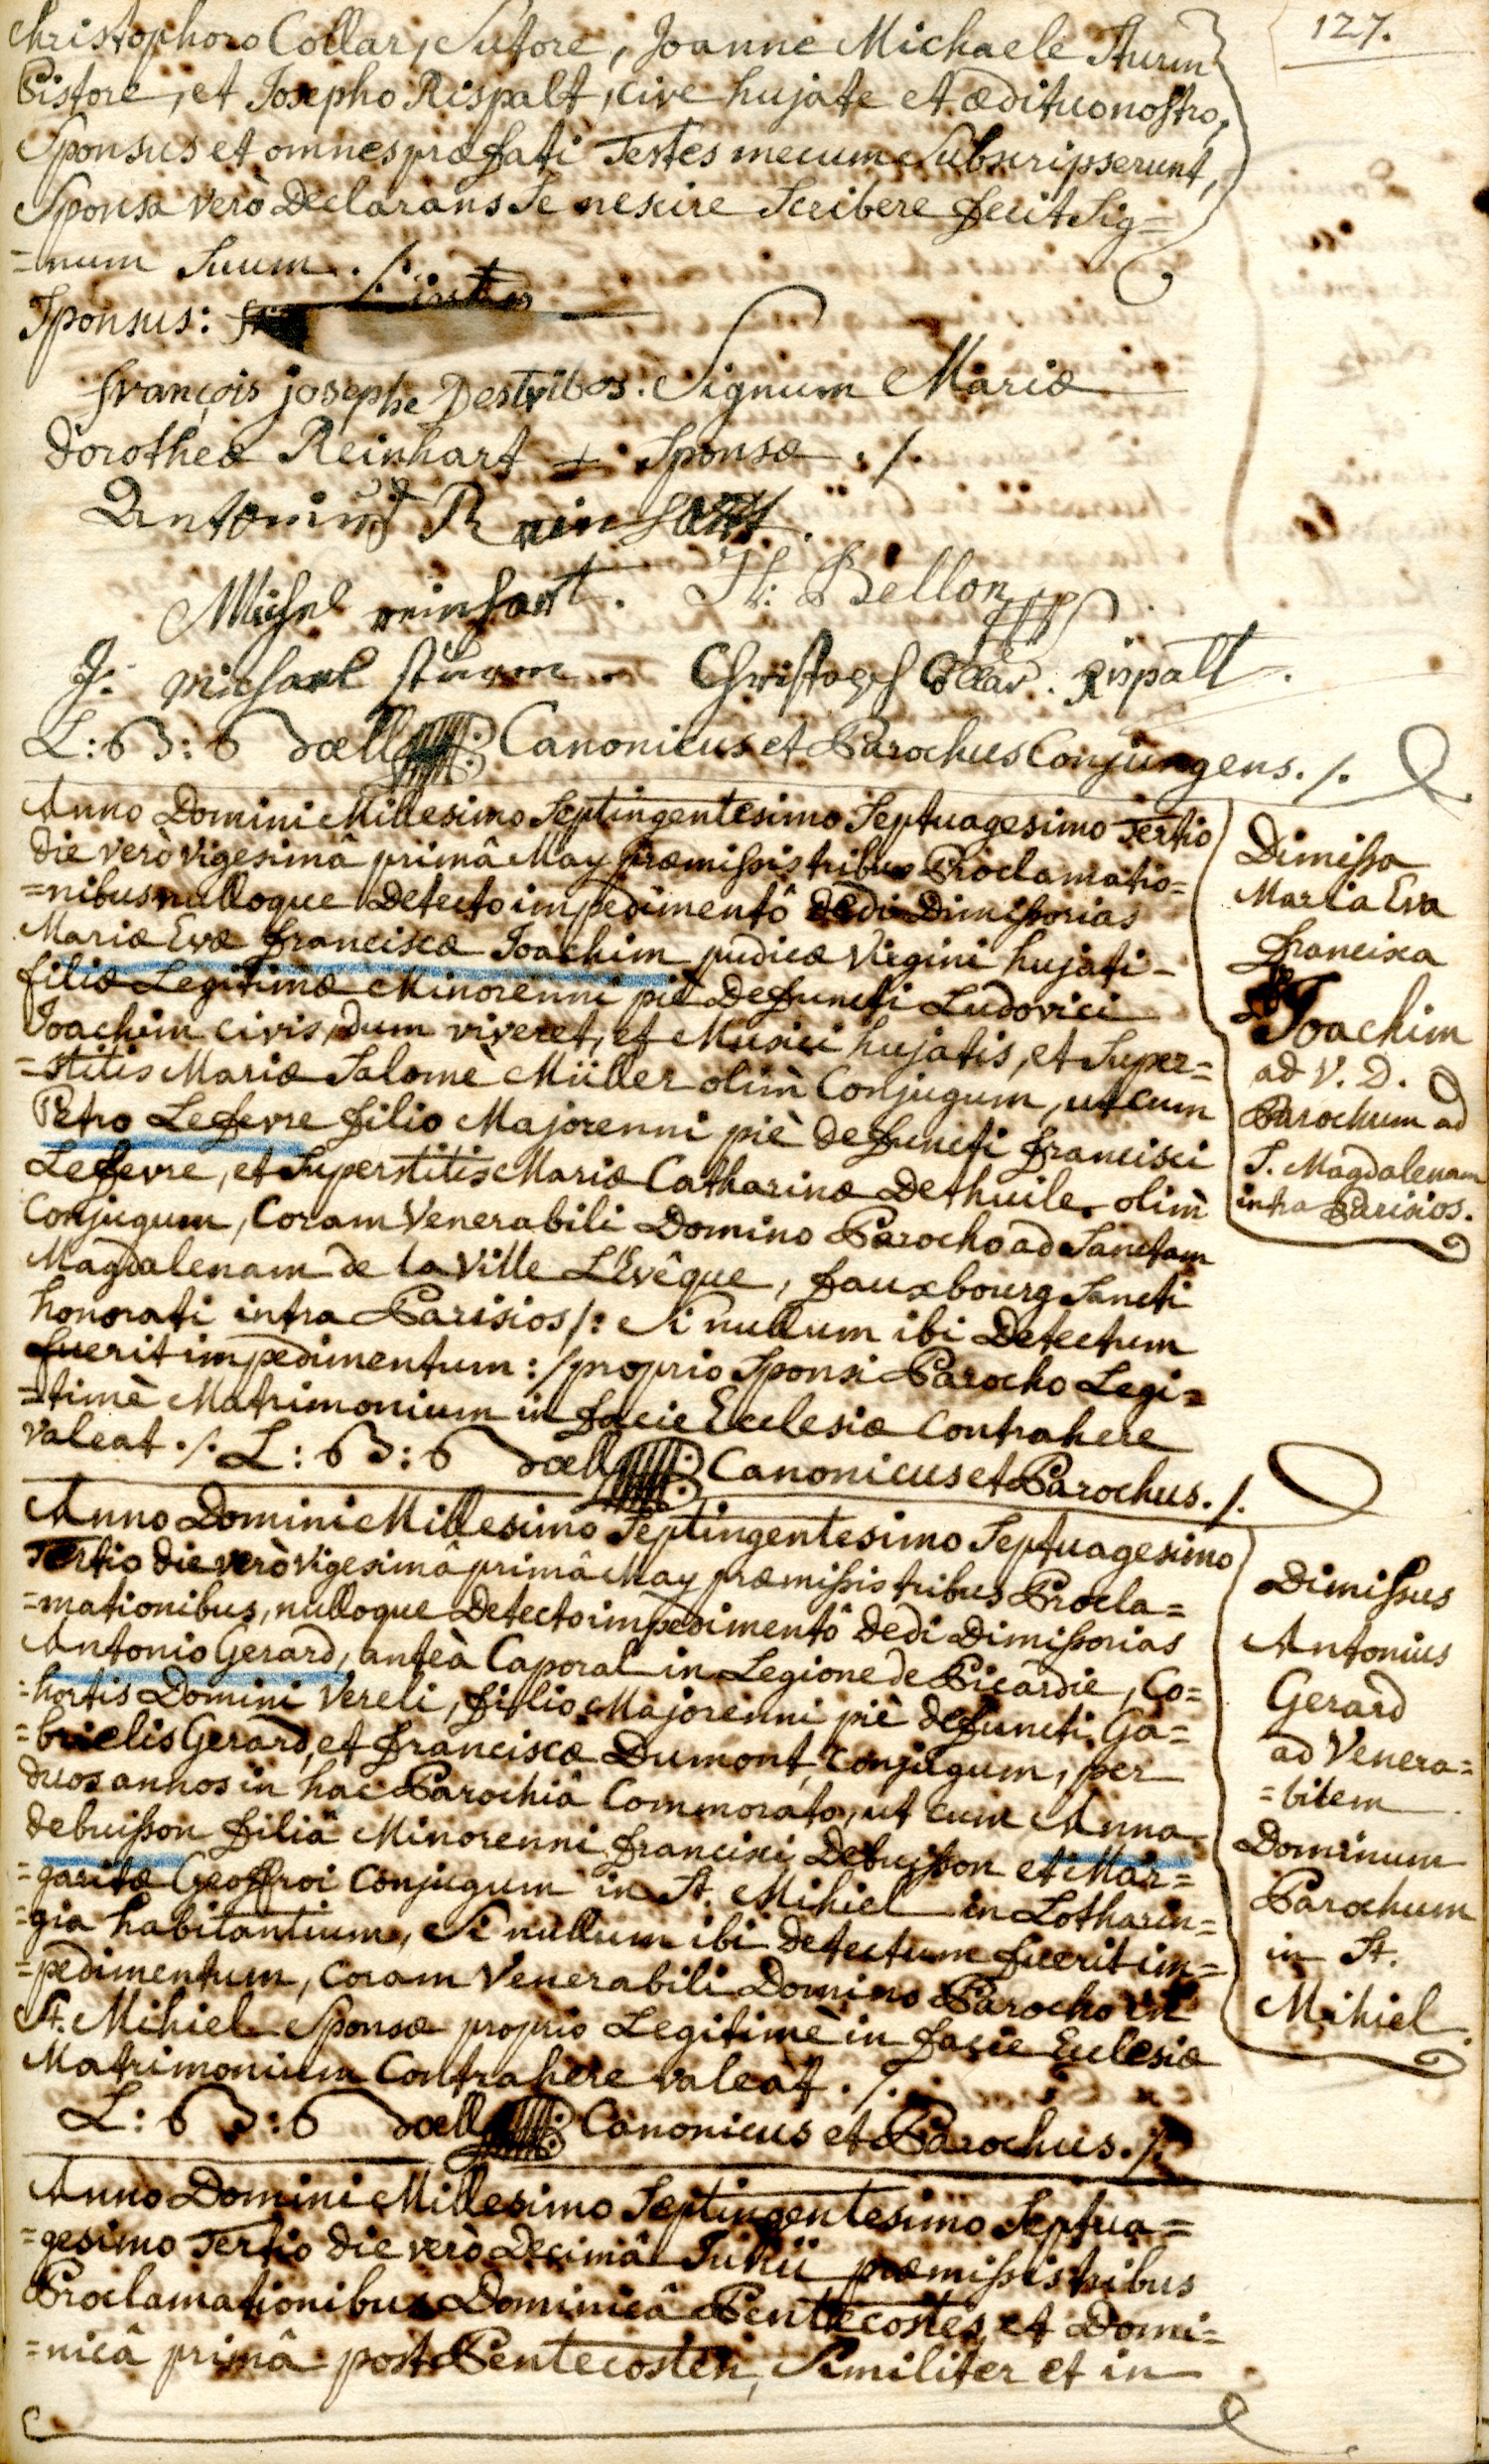 127.
Christophoro Collar, Sutore, Joanne Michaele Sturm
Pistore, et Josepho Rispalt, cive hujate et ædituo nostro,
Sponsus et omnes præfati Testes mecum Subscripserunt,
Sponsa verò Declarans Se nescire Scribere fecit Sig=
=num Suum ./.
Sponsus:
françois josephe Destribos. Signum Mariæ
Dorotheæ Reinhart + Sponsæ ./.
Antonius Reinhart.
Michel reinhart. Bellon
J: Michael Sturm. Christoph Collar. Rispalt.
L: B: G Doell Canonicus et Parochus Conjungens ./.
Anno Domini Millesimo Septingentesimo Septuagesimo Tertio
die verò vigesimâ primâ May præmissis tribus Proclamatio=
=nibus nulloque Detecto impedimentô dedi Dimissorias
Mariæ Evæ franciscæ Joachim pudicæ Virgini hujati
filiæ Legitimæ Minorenni piè Defuncti Ludovici
Joachim civis, dum viveret, et Musici hujatis, et Super=
=stitis Mariæ Salome Müller olim Conjugum, ut cum
Petro Lefevre filio Majorenni piè defuncti francisci
Lefevre, et Superstitis Mariæ Catharinæ Dethuile olim
Conjugum, Coram Venerabili Domino Parocho ad Sanctam
Magdalenam de la Ville L'Evêque, fauxbourg Sancti
honorati intra Parisios /: Si nullum ibi Detectum
fuerit impedimentum :/ proprio Sponsi Parocho Legi=
=timè Matrimonium in facie Ecclesiæ Contrahere
valeat ./. L: B: G Doell Canonicus et Parochus ./.
Dimissa
Maria Eva
francisca
Joachim
ad V. D.
Parochum ad
S. Magdalenam
intra Parisios.
Anno Domini Millesimo Septingentesimo Septuagesimo
Tertio die verò vigesimâ primâ May præmissis tribus Procla=
=mationibus, nulloque Detecto impedimentô dedi Dimissorias
Antonio Gerard, anteà Caporal in Legione de Picardie, Co=
=hortis Domini Vereli, filio Majorenni piè defuncti Ga=
=brielis Gerard, et franciscæ Dumont, Conjugum, per
duos annos in hac Parochiâ Commorato, ut cum Anna
debuisson filiâ Minorenni francisci Debuisson et Mar=
=garitæ Geoffroi Conjugum in St. Mihiel in Lotharin=
=gia habitantium, Si nullum ibi detectum fuerit im=
=pedimentum, Coram Venerabili Domino Parocho in
St. Mihiel Sponsæ proprio Legitimè in facie Ecclesiæ
Matrimonium Contrahere valeat ./.
L: B: G Doell Canonicus et Parochus ./.
Dimissus
Antonius
Gerard
ad Venera=
=bilem
Dominum
Parochum
in St.
Mihiel.
Anno Domini Millesimo Septingentesimo Septua=
=gesimo Tertio die verò Decimâ Junii præmissis tribus
Proclamationibus Dominicâ Pentecostes, et Domi=
=nicâ primâ post Pentecosten, Similiter et in